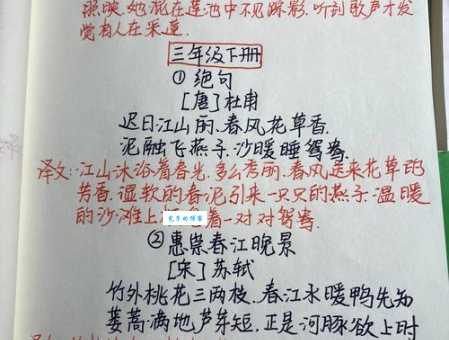 照映,她混在莲池中不见踪影,听到歌声才发
觉有人在采莲.
三年级下册
① 绝句
[唐]杜甫
迟日江山丽.春风花草香.
泥融飞燕子.沙暖睡鸳鸯.
译文:江山沐浴着春光,多么秀丽.春风送来花草的
芳香.湿软的春泥引来一只只的燕子.温暖
的沙滩上 着一对对鸳鸯.
② 惠崇春江晚景
[宋]苏轼
竹外桃花三两枝.春江水暖鸭先知
蒌蒿满地芦芽短.正是河豚欲上时